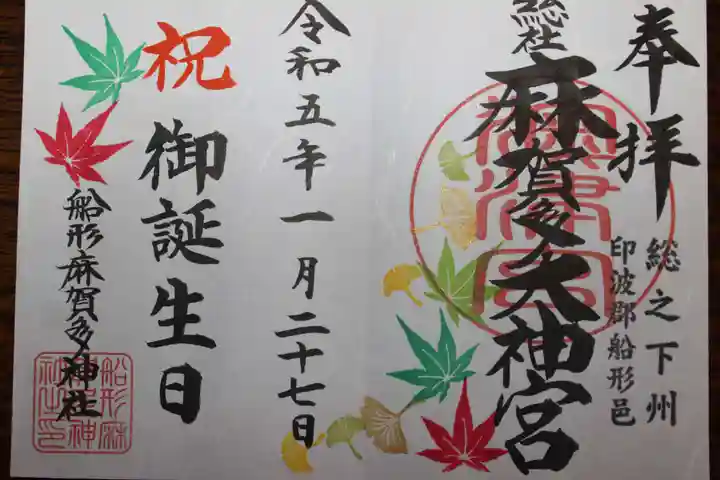 奉拝
総之下州
印波郡船形邑
總社
麻賀多大神宮
令和五年一月二十七日
祝
御誕生日
船形麻賀多神社